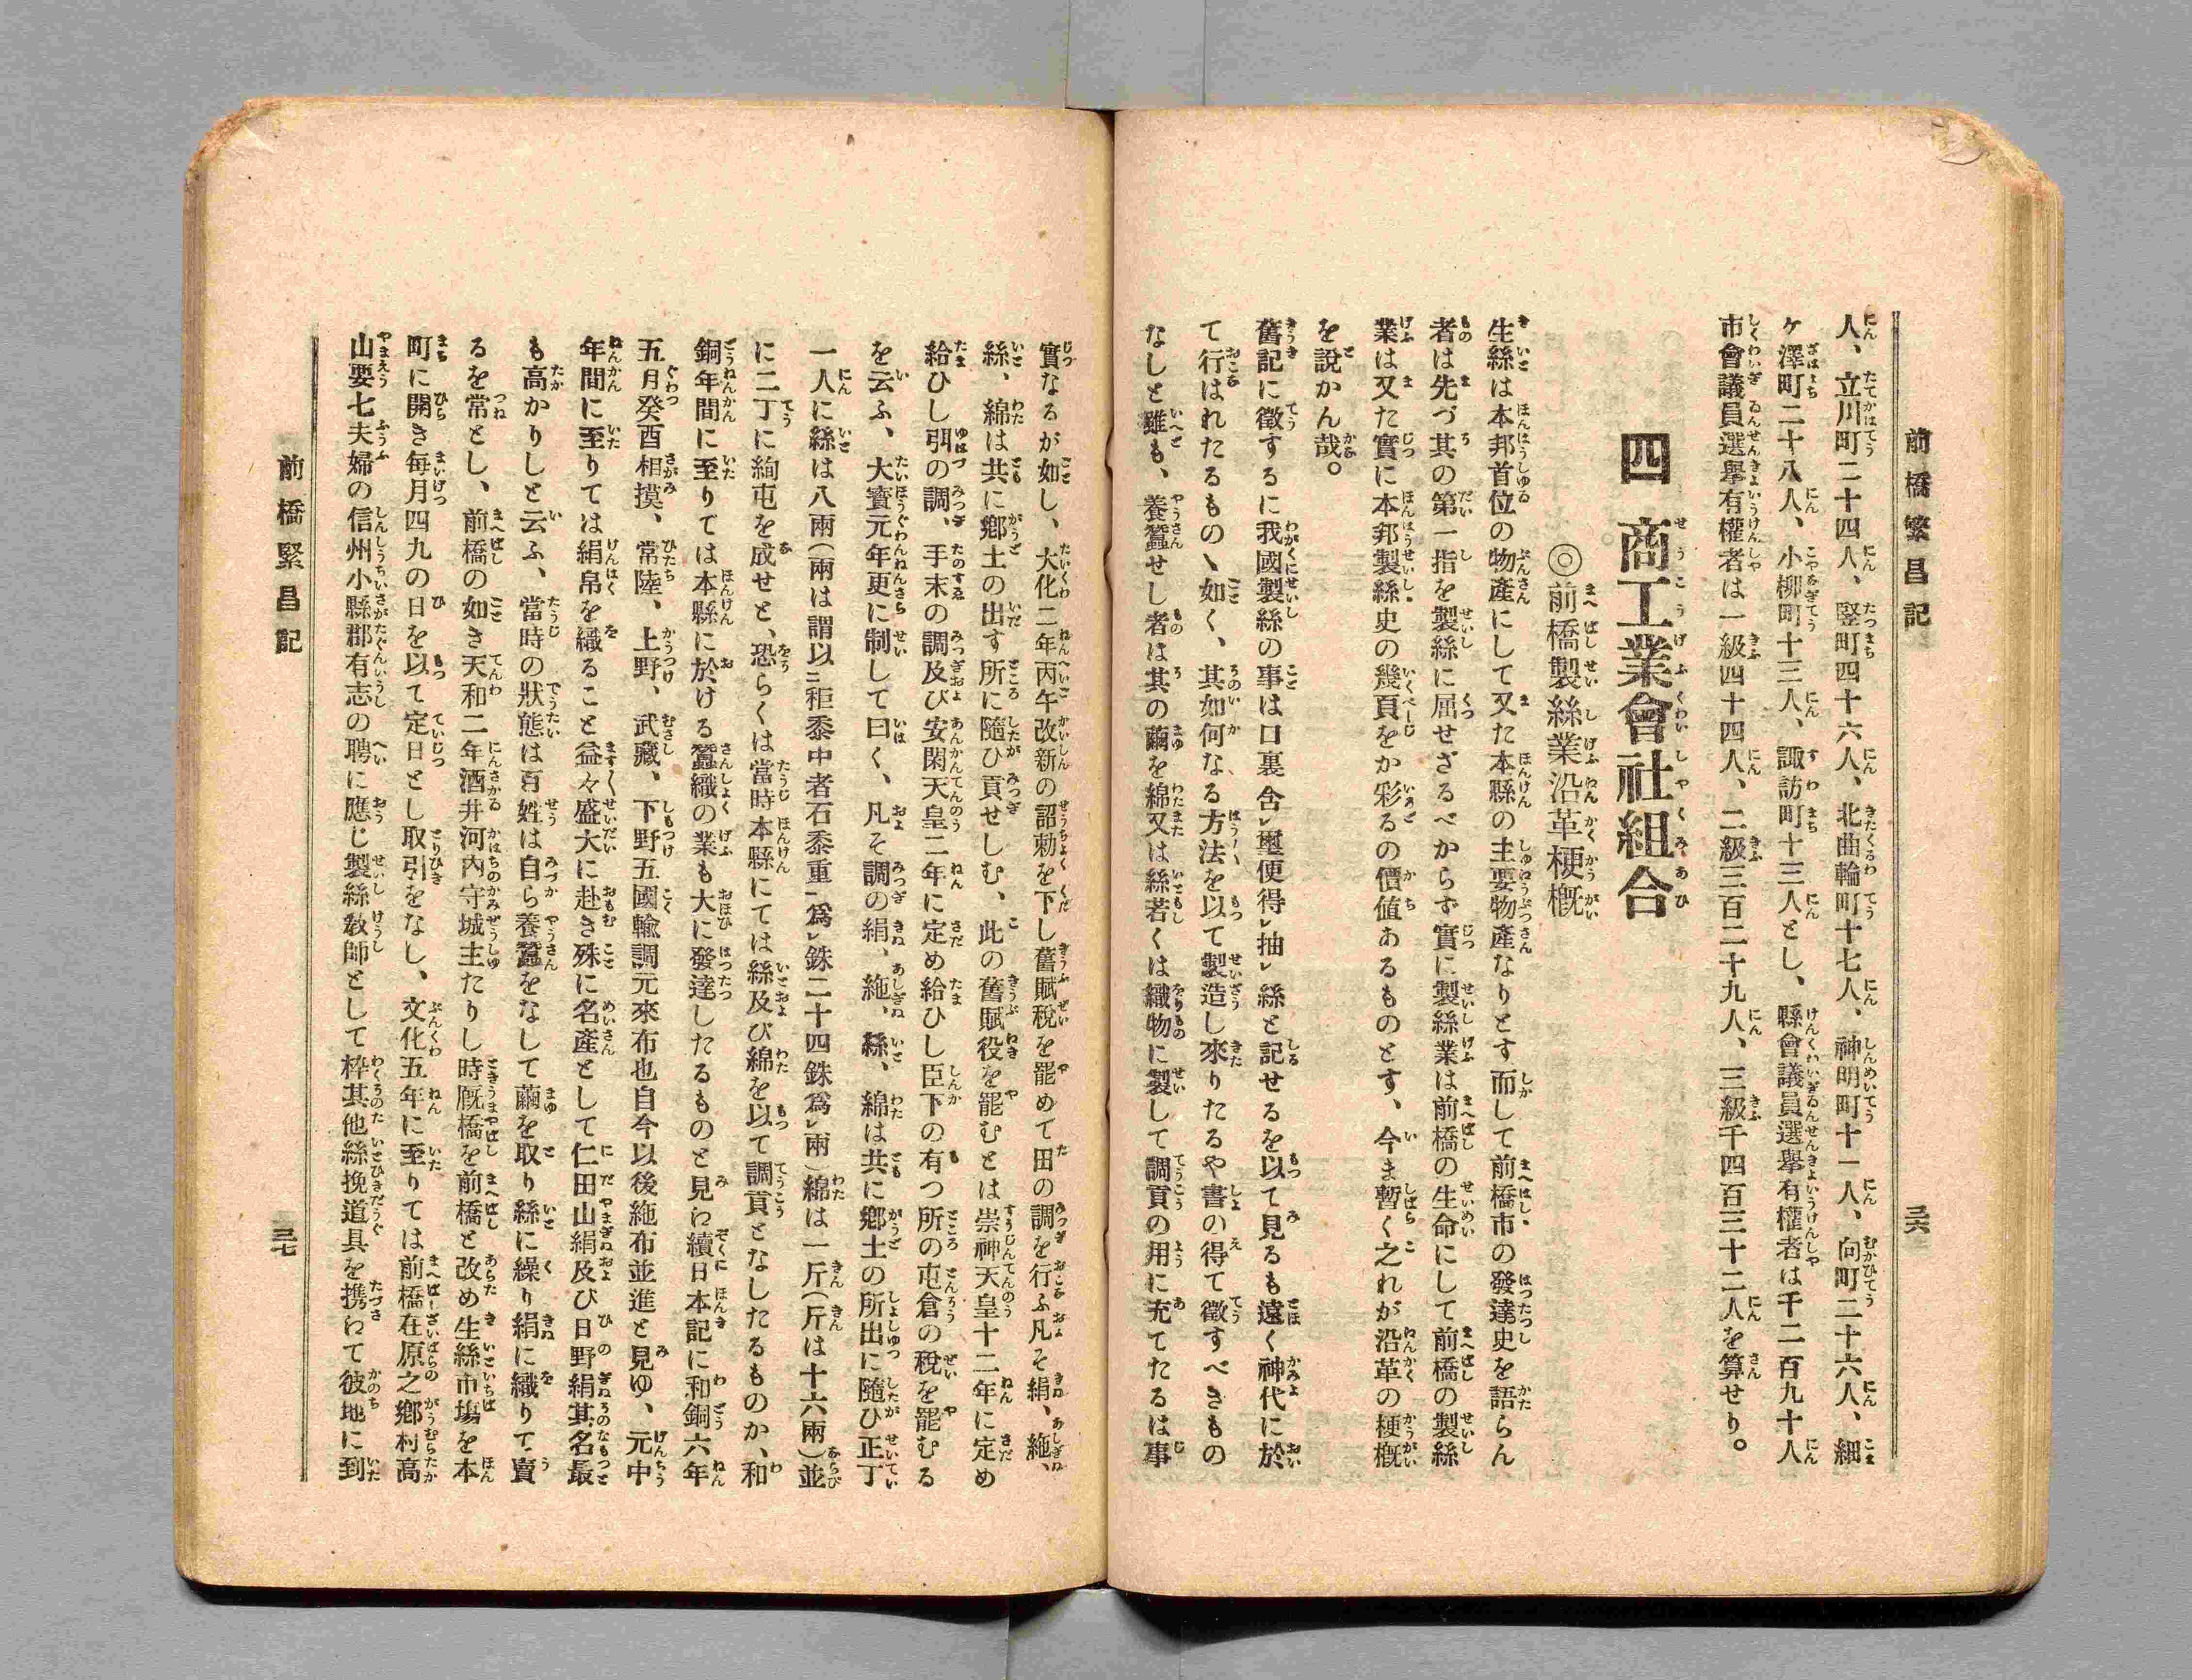 前橋繁昌記
三六
人、立川町二十四人、竪町四十六人、北曲輪町十七人、神明町十一人、向町二十六人、細
ヶ澤町二十八人、小柳町十三人、諏訪町十三人とし、縣會議員選擧有權者は千二百九十人
市會議員選擧有權者は一級四十四人、二級三百二十九人、三級千四百三十二人を算せり。
四 商工業會社組合
◎前橋製絲業沿革梗概
生絲は本邦首位の物產にして又た本縣の主要物產なりとす而して前橋市の發達史を語らん
者は先づ其の第一指を製絲に屈せざるべからず實に製絲業は前橋の生命にして前橋の製絲
業は又た實に本邦製絲史の幾頁をか彩るの價値あるものとす、今ま暫く之れが沿革の梗概
を說かん哉。
舊記に徵するに我國製絲の事は口裏含レ璽便得レ抽レ絲と記せるを以て見るも遠く神代に於
て行はれたるものゝ如く、其如何なる方法を以て製造し來りたるや書の得て徵すべきもの
なしと雖も、養蠶せし者は其の繭を綿又は絲若くは織物に製して調貢の用に充てたるは事
實なるが如し、大化二年丙午改新の詔勅を下し舊賦稅を罷めて田の調を行ふ凡そ絹、絁、
絲、綿は共に鄕土の出す所に隨ひ貢せしむ、此の舊賦役を罷むとは崇神天皇十二年に定め
給ひし弭の調、手末の調及び安閑天皇二年に定め給ひし臣下の有つ所の屯倉の稅を罷むる
を云ふ、大寳元年更に制して曰く、凡そ調の絹、絁、絲、綿は共に鄕土の所出に隨ひ正丁
一人に絲は八兩（兩は謂以二秬黍中者石黍重一爲レ銖二十四銖爲レ兩）綿は一斤（斤は十六兩）並
に二丁に絇屯を成せと、恐らくは當時本縣にては絲及び綿を以て調貢となしたるものか、和
銅年間に至りては本縣に於ける蠶織の業も大に發達したるものと見ゆ續日本記に和銅六年
五月癸酉相摸、常陸、上野、武藏、下野五國輸調元來布也自今以後絁布並進と見ゆ、元中
年間に至りては絹帛を織ること益々盛大に赴き殊に名產として仁田山絹及び日野絹其名最
も高かりしと云ふ、當時の狀態は百姓は自ら養蠶をなして繭を取り絲に繰り絹に織りて賣
るを常とし、前橋の如き天和二年酒井河內守城主たりし時厩橋を前橋と改め生絲市塲を本
町に開き每月四九の日を以て定日とし取引をなし、文化五年に至りては前橋在原之鄕村高
山要七夫婦の信州小縣郡有志の聘に應じ製絲敎師として枠其他絲挽道具を携ゐて彼地に到
前橋緊昌記
三七